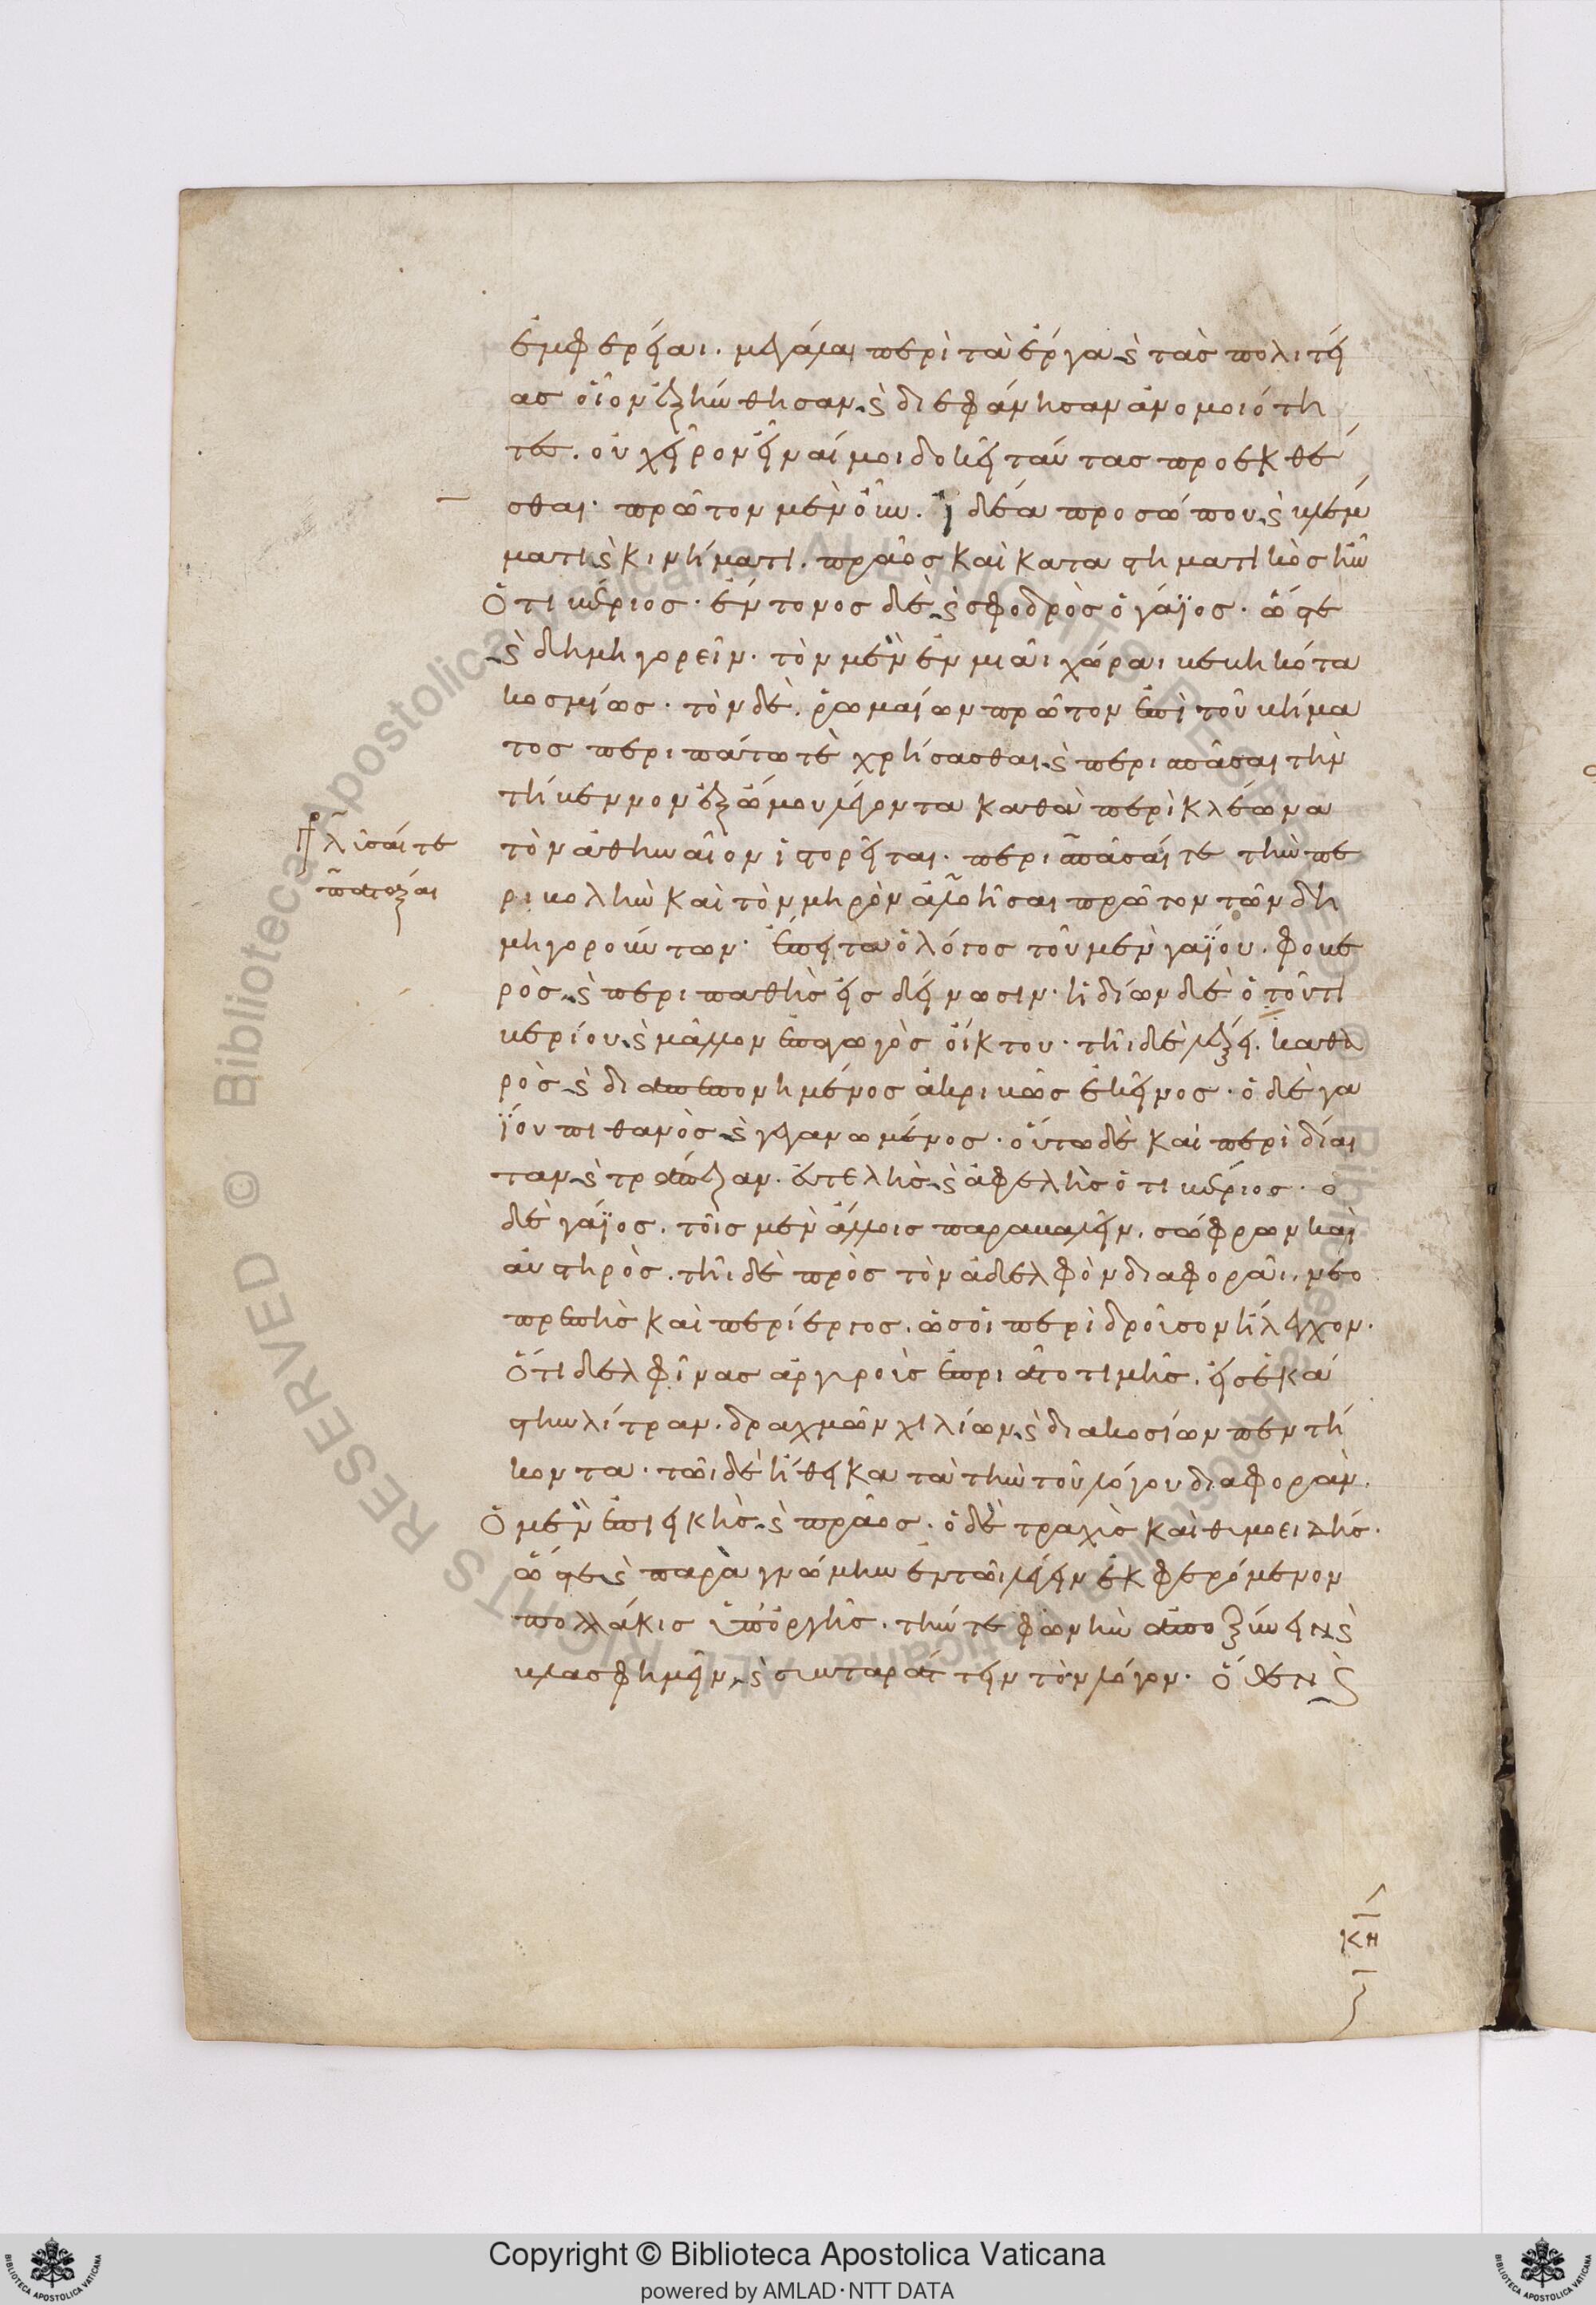 ἐμφερείαι. μεγάλαι περὶ τὰ ἔργα ϗ τὰς πολιτεί
ας οἷον ἐξηνθησαν ϗ διεφάνησαν ἀνομοιότη
τες. οὐ χεῖρον εἶναί μοι δοκεῖ ταύτας προεκθέ
σθαι. πρῶτον μὲν οὖν. ἰδέα προσώπου ϗ βλέμ
ματι ϗ κινήματι. πρᾶος καὶ καταστηματικὸς ἦν
Ὁ τιβέριος. ἔντονος δὲ ϗ σφοδρὸς ὁ γάϊος. ὥστε
ϗ δημηγορεῖν. τὸν μὲν ἐν μιᾶι χώραι βεβηκότα
κοσμίως. τὸν δὲ. ῥωμαίων πρῶτον ἐπὶ τοῦ βήμα
τος περιπάτω τὲ χρήσασθαι ϗ περισπᾶσαι τὴν
τήβεννον ἐξ ὤμου λέγοντα καθὰ περὶ κλέωνα
τὸν ἀθηναῖον ἱστορεῖται. περισπᾶσαί τε τὴν πε
ριβολὴν καὶ τὸν μηρὸν ἀλοῆσαι πρῶτον τῶν δη
μηγορούντων. ἔπειτα ὁ λόγος τοῦ μὲν γαΐου. φοβε
ρὸς ϗ περιπαθὴς εἰς δείνωσιν. ἡδίων δὲ ὁ τοῦ τι
βερίου ϗ μᾶλλον ἐπαγωγὸς οἴκτου. τῆι δὲ λέξει. καθα
ρὸς ϗ διαπεπονημένος ἀκριβῶς ἐκεῖνος. ὁ δὲ γα
ΐου πιθανὸς ϗ γεγανωμένος. οὕτω δὲ καὶ περὶ δίαι
ταν ϗ τράπεζαν. εὐτελὴς ϗ ἀφελὴς ὁ τιβέριος. ὁ
δὲ γάϊος. τοῖς μὲν ἄλλοις παραβαλεῖν. σώφρων καὶ
αὐστηρὸς. τῆι δὲ πρὸς τὸν ἀδελφὸν διαφορᾶι. νεο
πρεπὴς καὶ περίεργος. ὡς οἱ περὶ δροῦσον ἤλεγχον.
Ὅτι δελφῖνας ἀργυροῦς ἐπρίατο τιμῆς. εἰς ἑκά
στην λίτραν. δραχμῶν χιλίων ϗ διακοσίων πεντή
κοντα. τῶι δὲ ἤθει κατὰ τὴν τοῦ λόγου διαφοράν.
Ὁ μὲν ἐπιεικὴς ϗ πρᾶος. ὁ δὲ τραχὺς καὶ θυμοειδής.
ὥστε ϗ παρὰ γνώμην ἐν τῶι λέγειν ἐκφερόμενον
πολλάκις ὑπ' ὀργῆς. τήν τε φωνὴν ἀποξύνειν ϗ
βλασφημεῖν ϗ συνταράττειν τὸν λόγον. ὅθεν ϗ
πλῆσαί τε
πατάξαι
κη